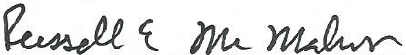 Russell E McMahon